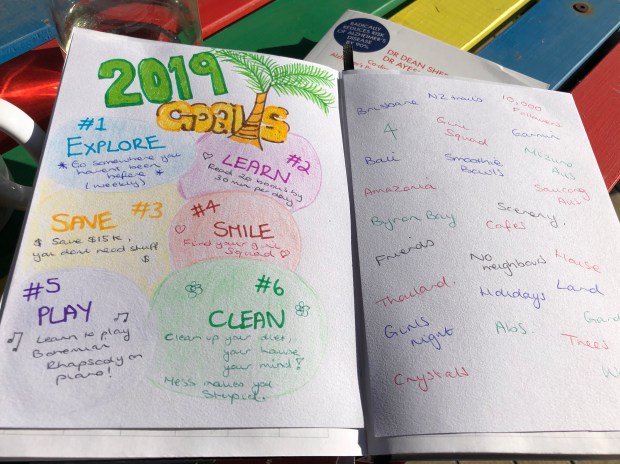 2019
GOALS
#1
EXPLORE
* Go somewhere you
haven't been
before *
(weekly)
#2
LEARN
Read 20 books by
30 min per day
SAVE #3
$ Save $15k,
you don't need stuff
$
#4
SMILE
Find your girl
Squad
#5
PLAY
Learn to play
Bohemian
Rhapsody on
piano!
#6
CLEAN
Clean up your diet,
your house
your mind!
Mess makes you
stupid.
RADICALLY
REDUCES RISK
OF ALZHEIMER'S
DISEASE
BY 90%
DR DEAN SHER
DR AYE
Brisbane
10,000
followers
4
Girl
Squad
Bali
Smoothie
Bowls
Amazonia
Saucony
Aus
Byron Bay
Cafes
Scenery,
Friends
No
neighbours
House
Thailand.
Holidays
Land
Girls
night
Abs.
Gard
Trees
Crystals
W